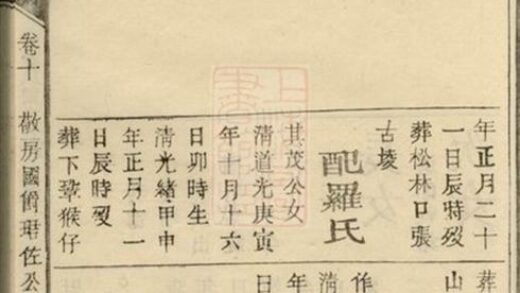 年正月二十
一日辰時歿
葬松林口張
古堎
配羅氏
其茂公女
清道光庚寅
年十月十六
日卯時生
清光緒甲申
年正月十一
日辰時歿
葬下䔖猴仔
葬
山
作
清
年
日
卷十 敬房國爵珺佐公